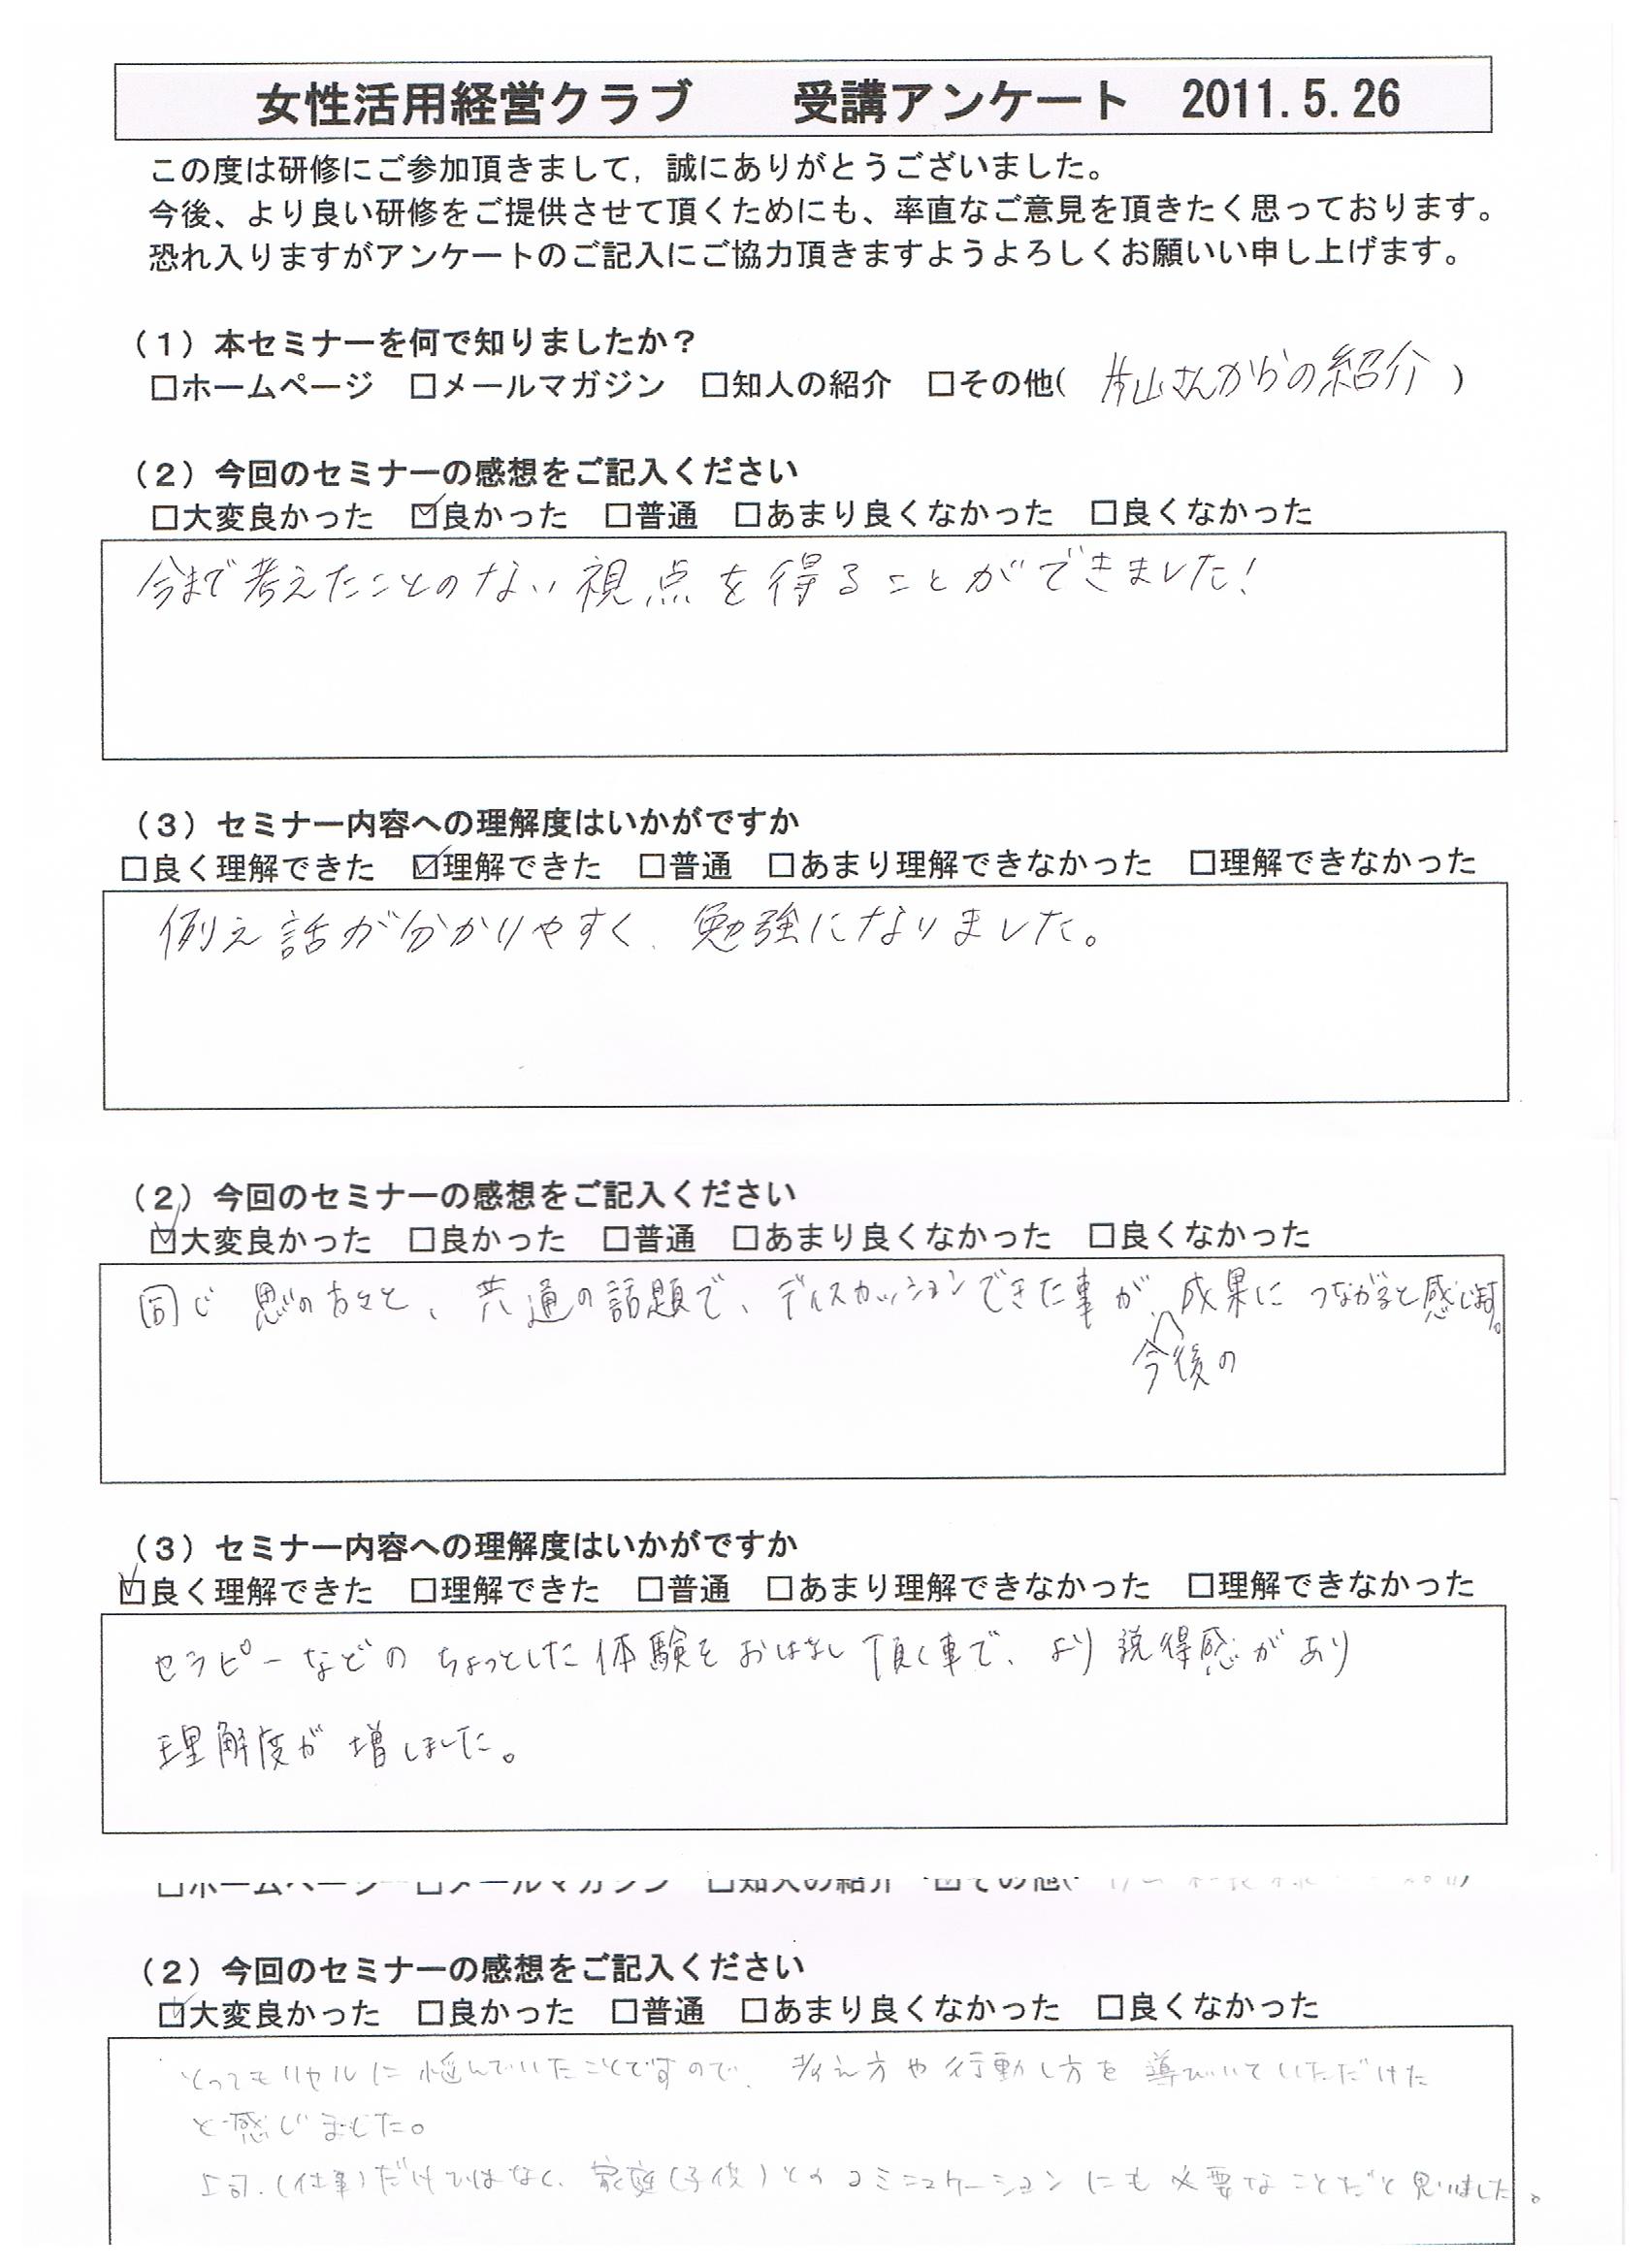 女性活用経営クラブ　　受講アンケート　2011.5.26
この度は研修にご参加頂きまして，誠にありがとうございました。
今後、より良い研修をご提供させて頂くためにも、率直なご意見を頂きたく思っております。
恐れ入りますがアンケートのご記入にご協力頂きますようよろしくお願いい申し上げます。
（１）本セミナーを何で知りましたか？
□ホームページ　□メールマガジン　□知人の紹介　□その他(　片山さんからの紹介　)
（２）今回のセミナーの感想をご記入ください
□大変良かった　☑良かった　□普通　□あまり良くなかった　□良くなかった
今まで考えたことのない視点を得ることができました！
（３）セミナー内容への理解度はいかがですか
□良く理解できた　☑理解できた　□普通　□あまり理解できなかった　□理解できなかった
例え話が分かりやすく、勉強になりました。
（２）今回のセミナーの感想をご記入ください
☑大変良かった　□良かった　□普通　□あまり良くなかった　□良くなかった
同じ思いの方々と、共通の話題で、ディスカッションできた事が、成果につながると感じます。
今後の
（３）セミナー内容への理解度はいかがですか
☑良く理解できた　□理解できた　□普通　□あまり理解できなかった　□理解できなかった
セラピーなどのちょっとした体験をおはなし頂く事で、より説得感があり
理解度が増しました。
□ホームページ　□メールマガジン　□知人の紹介　☑その他(
（２）今回のセミナーの感想をご記入ください
☑大変良かった　□良かった　□普通　□あまり良くなかった　□良くなかった
とってもリヤルに悩んでいたことですので、考え方や行動し方を導びいていただけた
と感じました。
上司.(仕事)だけではなく、家庭(子供)とのコミニュケーションにも必要なことだと思いました。